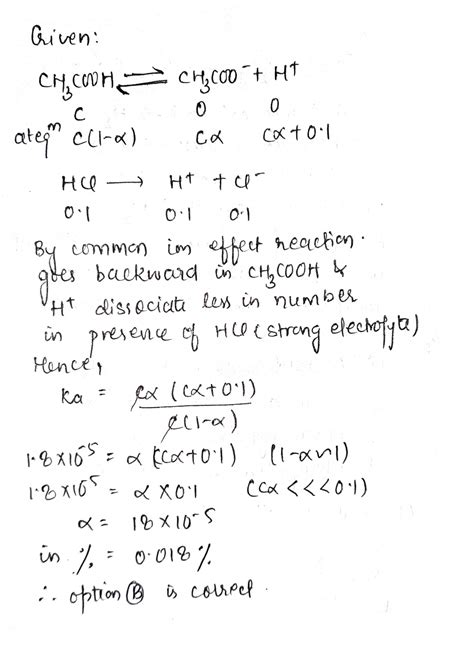 Given:
CH₃COOH ⇌ CH₃COO⁻ + H⁺
C 0 0
ateqᵐ C(1-α) Cα Cα+0.1
HCl → H⁺ + Cl⁻
0.1 0.1 0.1
By common ion effect reaction.
goes backward in CH₃COOH &
H⁺ dissociate less in number
in presence of HCl (strong electrolyte)
Hence,
Ka = Cα (Cα+0.1)
C(1-α)
1.8×10⁻⁵ = α (Cα+0.1) (1-α~1)
1.8×10⁻⁵ = α × 0.1 (Cα <<< 0.1)
α = 18×10⁻⁵
in % = 0.018 %
∴ option Ⓑ is correct.